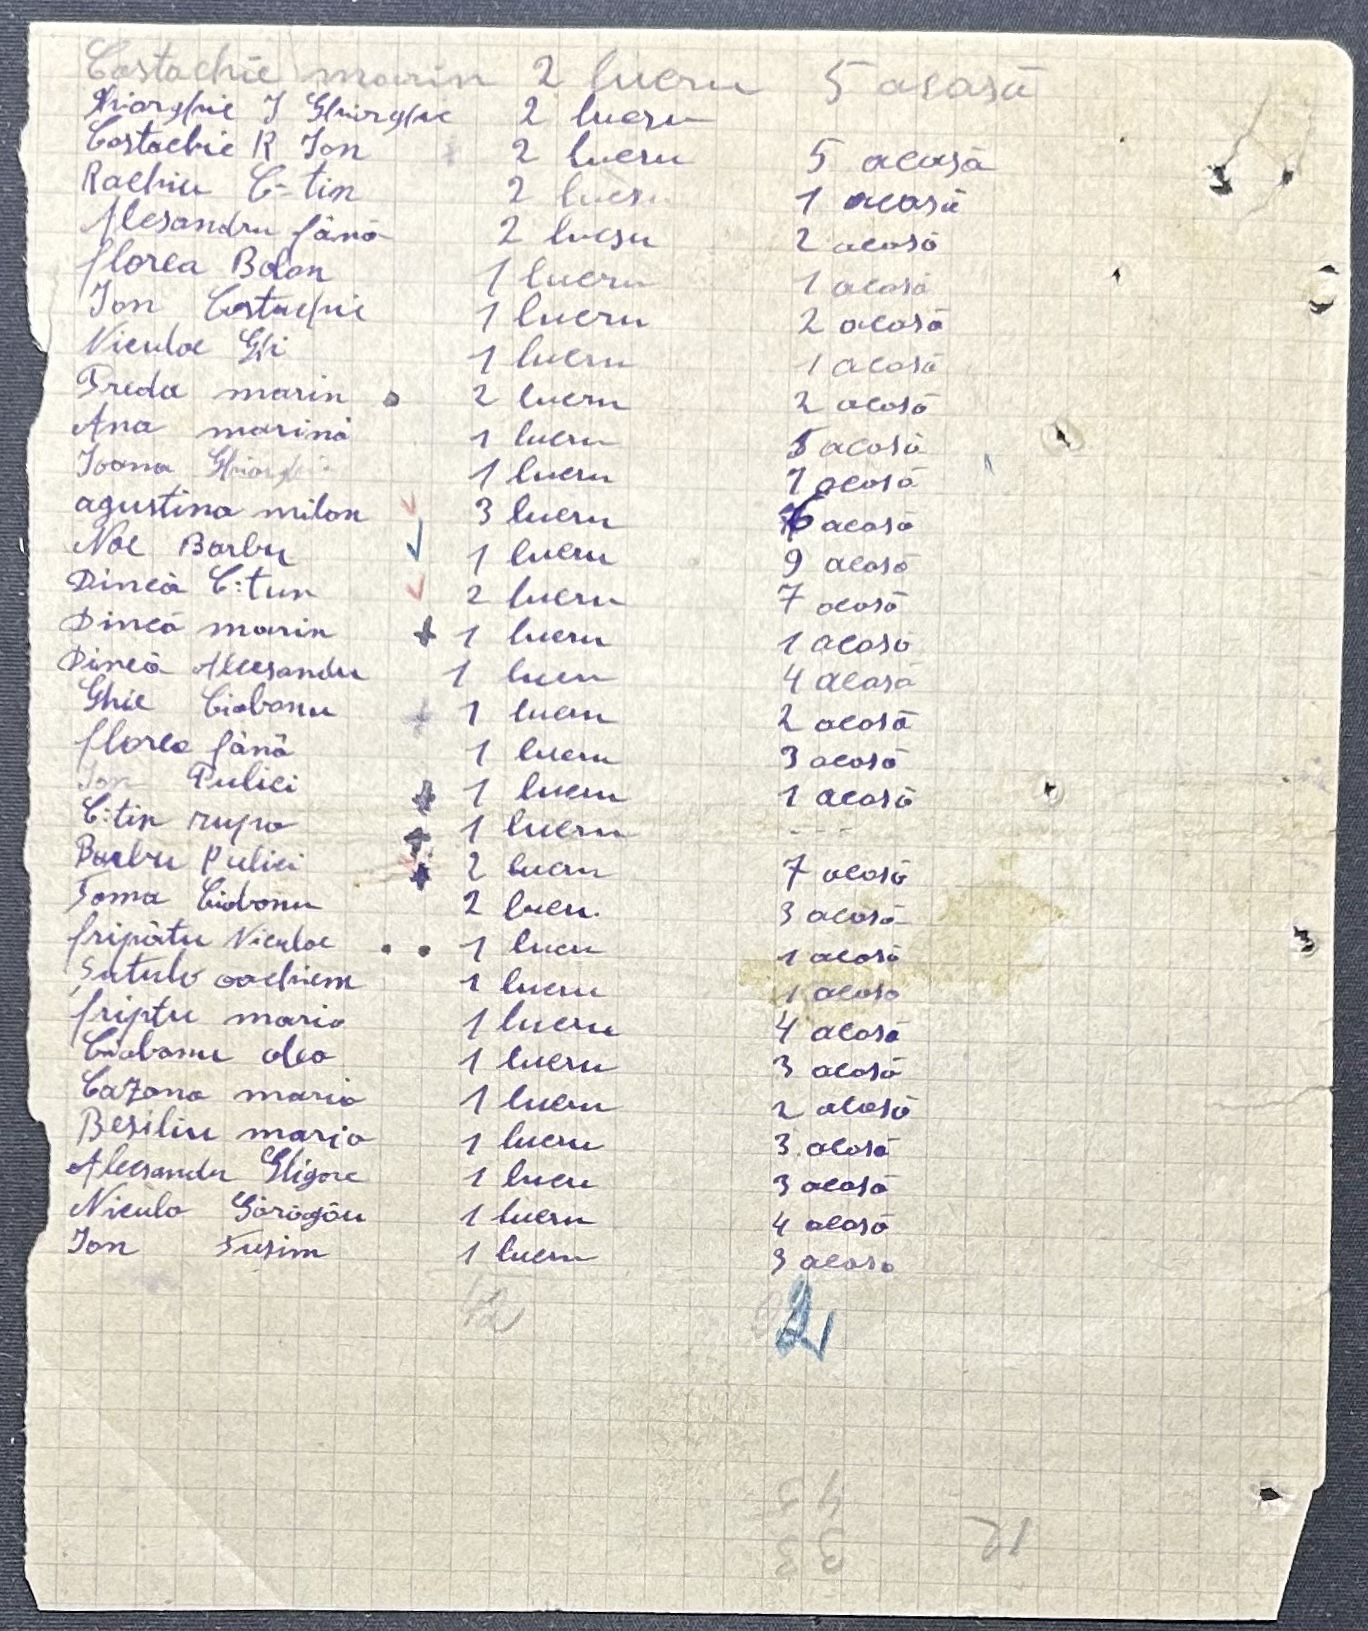 Costachie marin 2 lucru 5 acasă
Ghiorghie I Ghiorghie 2 lucru
Costachie R Ion 2 lucru 5 acasă
Rachiu C-tin 2 lucru 1 acasă
Alesandru fână 2 lucru 2 acasă
florea Bolon 1 lucru 1 acasă
Ion Costachie 1 lucru 2 acasă
Niculae Ghi 1 lucru 1 acasă
Preda marin 2 lucru 2 acasă
Ana marină 1 lucru 5 acasă
Ioana Ghiorghie 1 lucru 7 acasă
agustina milon 3 lucru 6 acasă
Noe Barbu 1 lucru 9 acasă
Dincă C:tun 2 lucru 7 acasă
Dincă marin 1 lucru 1 acasă
Dincă Alecsandu 1 lucu 4 acasă
Ghie Ciobanu 1 lucru 2 acasă
florea fână 1 lucru 3 acasă
Ion Pulici 1 lucru 1 acasă
C:tin rupa 1 lucru - - -
Barbu Pulici 2 lucru 7 acasă
Toma Ciobanu 2 lucu. 3 acasă
fripătu Niculae 1 lucu 1 acasă
1 lucru 1 acasă
friptu maria 1 lucru 4 acasă
Ciobanu olea 1 lucru 3 acasă
Cazana maria 1 lucru 2 acasă
Besiliu maria 1 lucru 3 acasă
Alecsandu Gligore 1 lucu 3 acasă
Niculo Gărăgău 1 lucru 4 acasă
Ion 1 lucru 3 acasa
42 2